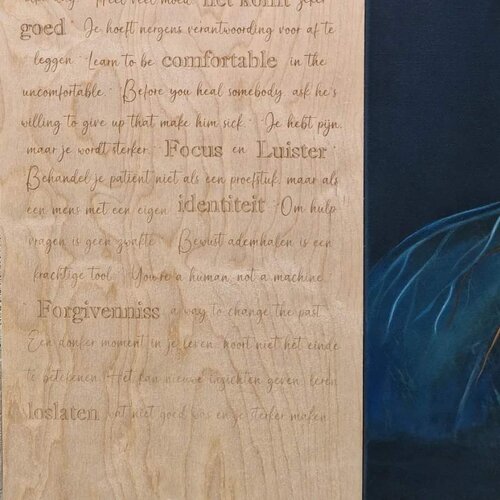 Heel veel moed het komt zeker
goed Je hoeft nergens verantwoording voor af te
leggen Learn to be comfortable in the
uncomfortable. Before you heal somebody, ask he's
willing to give up that make him sick. Je hebt pijn,
maar je wordt sterker. Focus en Luister
Behandel je patiënt niet als een proefstuk, maar als
een mens met een eigen identiteit Om hulp
vragen is geen zwakte Bewust ademhalen is een
krachtige tool You're a human, not a machine
Forgivenniss a way to change the past
Een donker moment in je leven, hoort niet het einde
te betekenen Het kan nieuwe inzichten geven, leren
loslaten wat niet goed was en je sterker maken